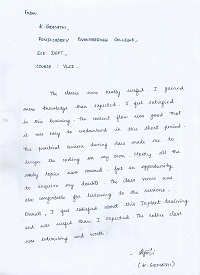 From
K. Gomathi,
Pondicherry Engineering College,
ECE Dept.,
Course : VLSI.
The classes were really useful. I gained
more knowledge than expected. I feel satisfied
in this training. The content flow was good that
it was easy to understand in this short period.
The practical sessions during class made me to
design the coding on my own. Mostly all the
study topics were covered. Got an opportunity
to enquire my doubts. The class rooms was
also comfortable for listening to the sessions.
Overall, I feel satisfied about this Inplant Training
and was useful than I expected. The entire class
was interesting and worth.
(K. Gomathi)